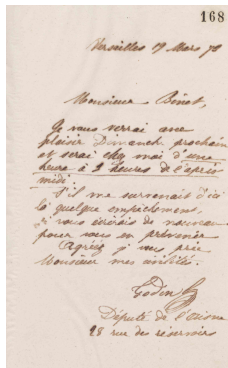 168
Versailles 19 Mars 76
Monsieur Benet,
Je vous verrai avec
plaisir Dimanche prochain
et serai chez moi d'une
heure à 2 heures de l'après
midi.
S'il me survenait d'ici
là quelque empêchement,
je vous écrirai de nouveau
pour vous en prévenir
Agréez je vous prie
Monsieur mes civilités.
Godin
Député de l'Aisne
28 rue des réservoirs